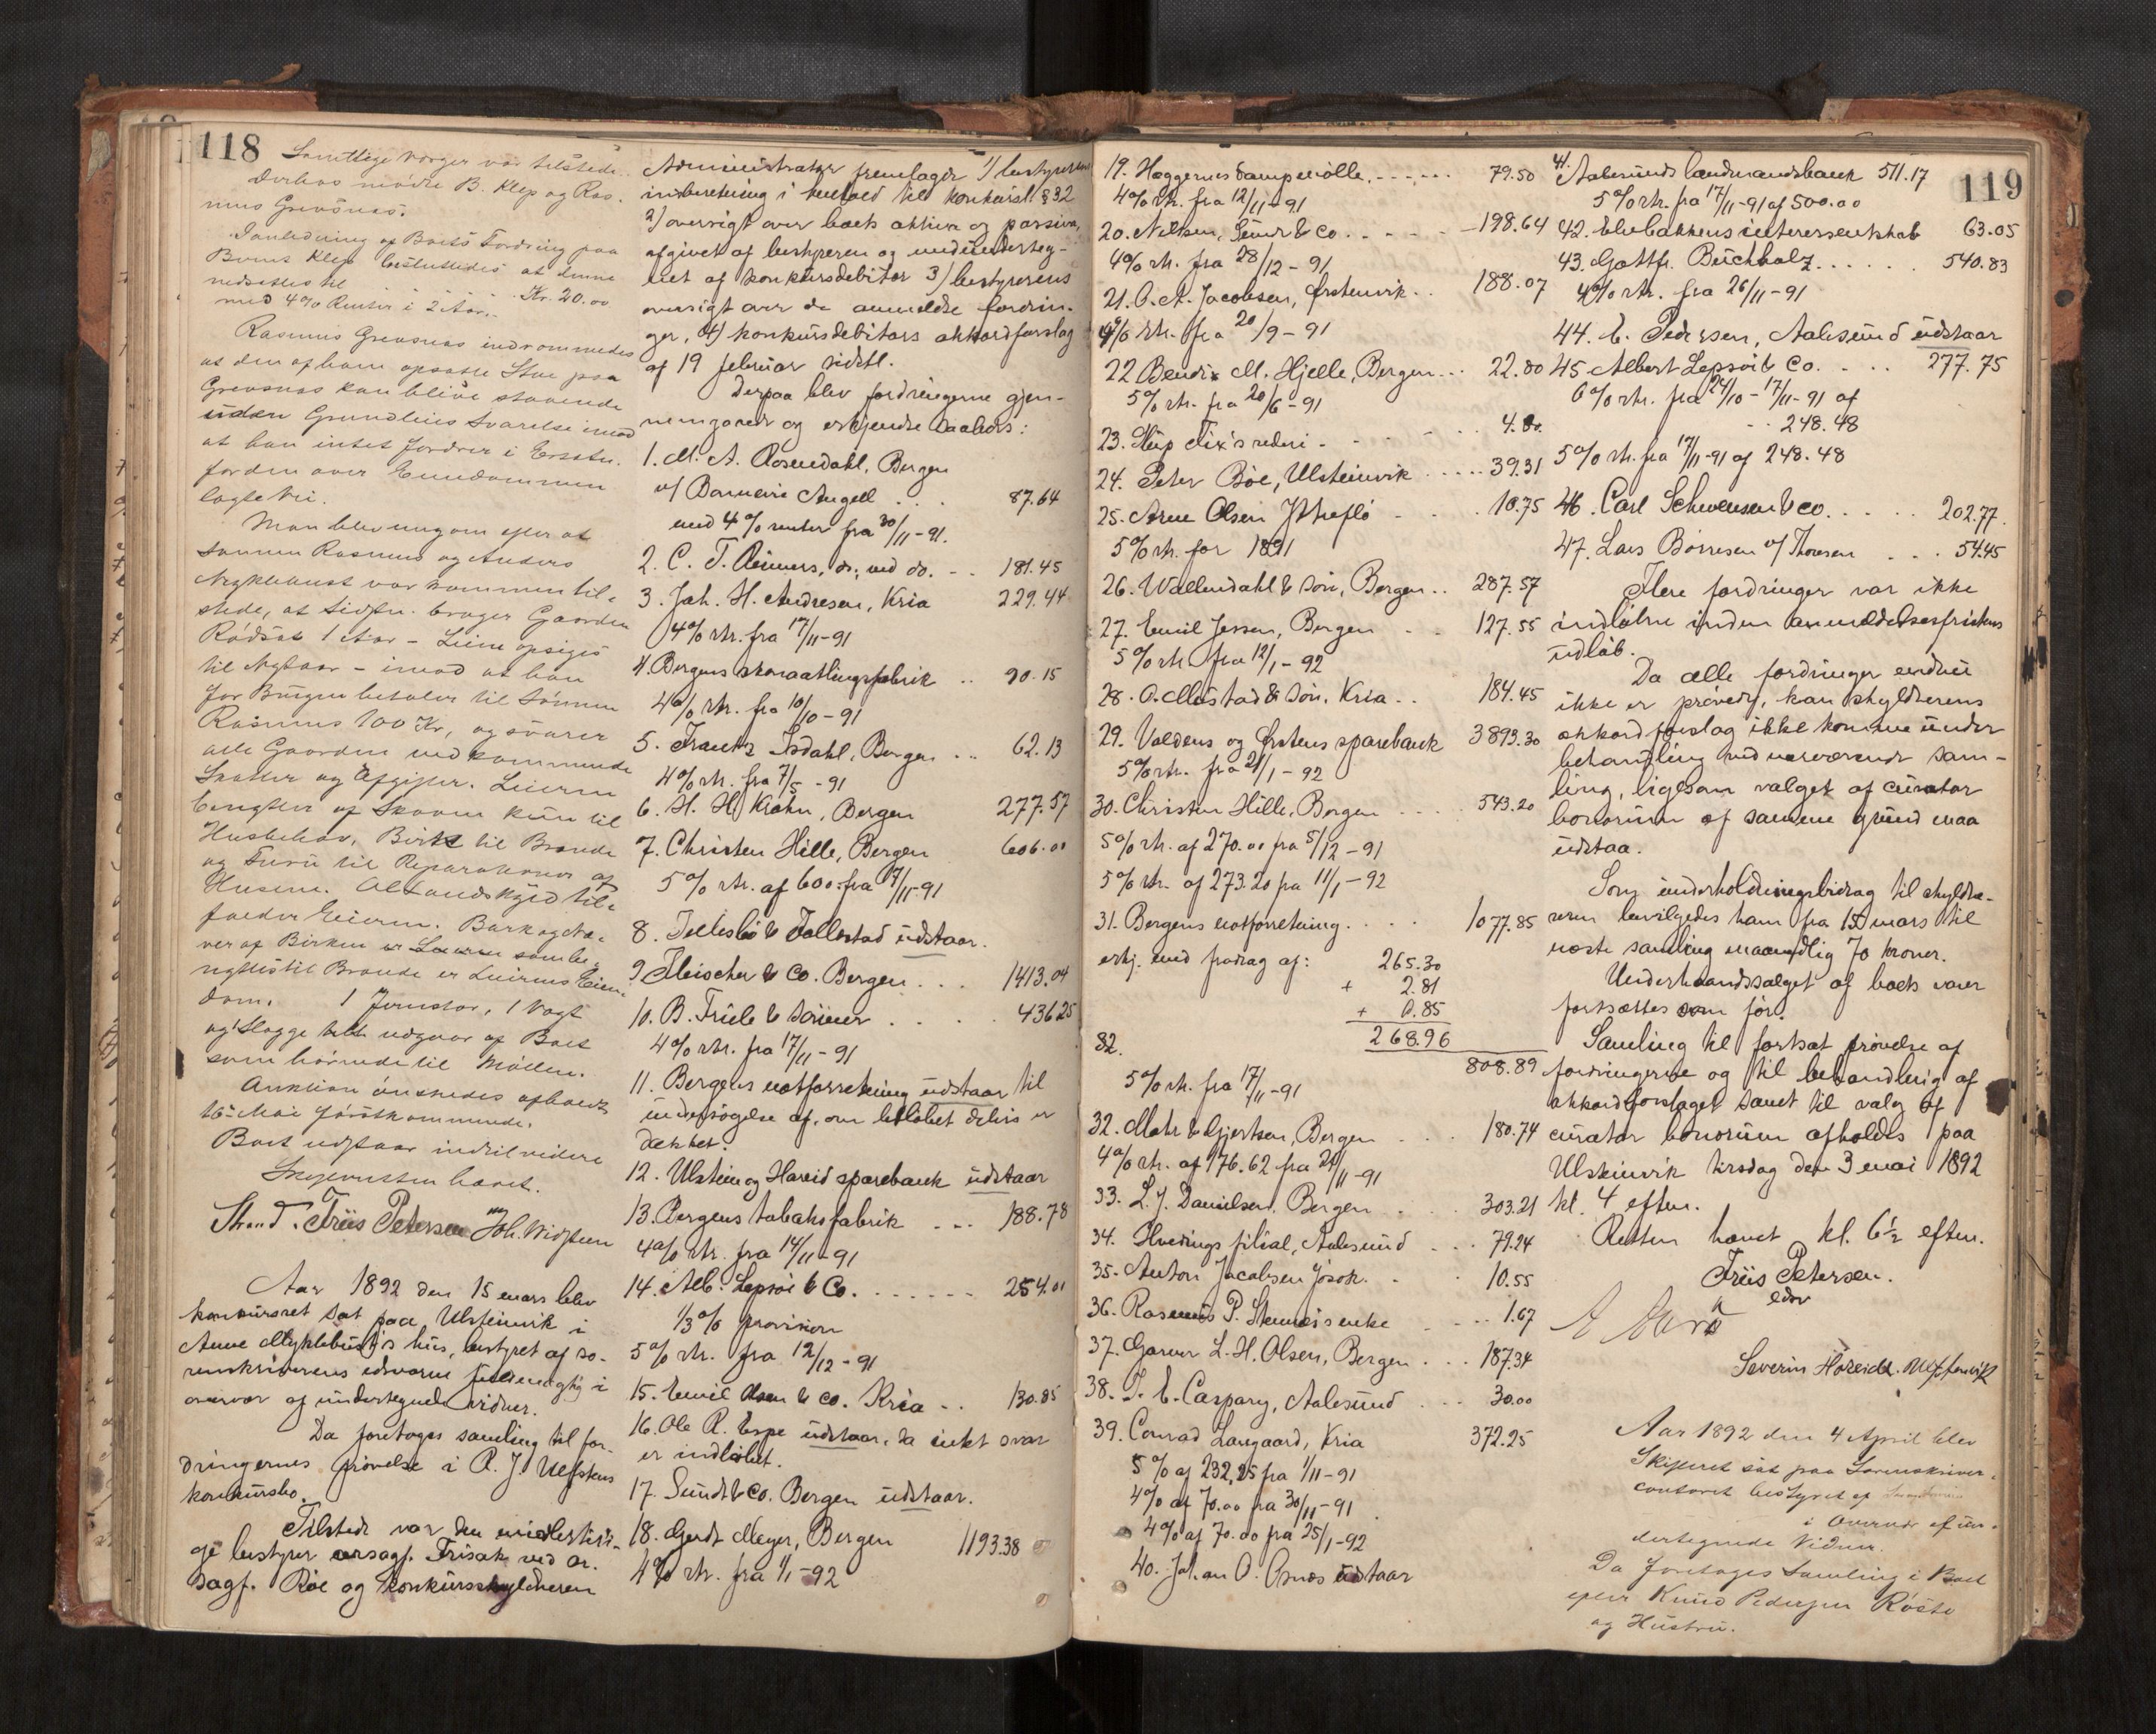 118
Samtlige Arvinger var tilstede.
Derhos mødte B. Klep og Ras-
mus Grevsnæs.
I anledning af Boets Fordring paa
Bernt Klep besluttedes at denne
nedsættes til Kr. 20.00
med 4% Renter i 2 Aar.
Rasmus Grevsnæs indrømmedes
at den af ham opsatte Stue paa
Grevsnæs kan blive staaende
uden Grundleies Svarelse imod
at han intet fordrer i Erstatn.
for den over Eiendommen
lagte Vei.
Man blev enig om efter at
Sønnen Rasmus og Anders
Myklebust var kommen til-
stede, at sidstn. bruger Gaarden
Rødsæt 1 Aar - Leien opsiges
til Nytaar - imod at han
for Brugen betaler til Sønnen
Rasmus 100 Kr, og svarer
alle Gaarden vedkommende
Skatter og Afgifter. Leieren
benytter af Skoven kun til
Husbehov, Birk til Brænde
og Furu til Reparationer af
Husene. Al Landskyld til-
falder Eieren. Bark og Næ-
ver af Birken som be-
nyttes til Brænde er Leierens Eien-
dom. 1 Jernstør, 1 Vægt
og Slægge udgaar af Boet
som hørende til Møllen.
Auktion ønskedes afholdt
16de Mai førstkommende.
Boet udstaar indtil videre
Skifteretten hævet.
Friis Petersen Joh. Widsteen
Aar 1892 den 15 mars blev
konkursret sat paa Ulsteinvik i
Anne Myklebust's hus, bestyret af so-
renskriverens edsvorne fuldmægtig i
overvær af undertegnede vidner.
Da foretoges samling til for-
dringernes prøvelse i R. J. Ulfstens
konkursbo.
Tilstede var den midlertidi-
ge bestyrer oversagf. Frisak ved o.r.
sagf. Røe og konkursskyldneren
Administrator fremlagde 1) bestyrerens
indberetning i henhold til konkursl. § 32
2) oversigt over boets aktiva og passiva,
afgivet af bestyreren og medunderteg-
net af konkursdebitor 3) bestyrerens
oversigt over de anmeldte fordrin-
ger, 4) konkursdebitors akkordforslag
af 19 februar sidstl.
Derpaa blev fordringerne gjen-
nemgaaede og erkjendte saaledes:
1. M. A. Rosendahl, Bergen
v/ Angell . . 87.64
med 4% renter fra 30/11-91.
2. C. T. Reimers, do, ved do. - . 181.45
3. Joh. H. Andresen, Kria 229.44
4% rtr. fra 17/11-91
4. Bergens skomatlingsfabrik .. 90.15
4% rtr. fra 10/10-91
5. Frantz Isdahl, Bergen .. 62.13
4% rtr. fra 7/5-91
6. H. H. Krohn, Bergen 277.57
7. Christen Hille, Bergen 606.00
5% rtr. af 600.- fra 17/11-91
8. & Tollestad udstaar.
9. Fleischer & Co. Bergen . . . 1413.04
10. B. Friele & sønner . . . . 436.25
4% rtr. fra 17/11-91
11. Bergens notforretning udstaar til
undersøgelse af, om beløbet delvis er
dækket.
12. Ulstein og Hareid sparebank udstaar
13. Bergens tabaksfabrik . . . 188.78
4% rtr. fra 14/11-91
14. Alb. Lepsøe & Co. . . . . . . 254.01
1/3% provision
5% rtr. fra 12/12-91
15. Emil Olsen & co. Kria - . . 130.85
16. Ole R. Espe udstaar, da intet svar
er indløbet.
17. Sundt & Co. Bergen udstaar.
18. Gerdt Meyer, Bergen 1193.38
4% rtr. fra 1/1-92
19. Hæggernes dampmølle. - - - - - - 79.50
4% rtr. fra 12/11-91
20. Nilssen, & Co . . . . - 198.64
4% rtr. fra 28/12-91
21. O. A. Jacobsen, Ørstenvik . . 188.07
4% rtr. fra 20/9-91
22 Bendix M. Hjelle, Bergen . . . 22.80
5% rtr. fra 20/6-91
23. rederi - . . . . . 4.80.
24. Peter Bøe, Ulsteinvik . . . . . 39.31
25. Arne Olsen Ytreflø . . . 10.75
5% rtr. for 1891
26. Wallendahl & Søn, Bergen . . 287.57
27. Emil Jessen, Bergen . . 127.55
5% rtr. fra 12/1-92
28. O. Mustad & Søn, Kria . . 184.45
29. Voldens og Ørstens sparebank 3893.30
5% rtr. fra 21/1-92
30. Christen Hille, Bergen . . . 543.20
5% rtr. af 270.00 fra 5/12-91
5% rtr. af 273.20 fra 11/1-92
31. Bergens notforretning . . . . 1077.85
erkj. med fradrag af: 265.30
+ 2.81
+ 0.85
268.96
32. 808.89
5% rtr. fra 17/11-91
32. Mohr & Gjertsen, Bergen . . . 180.74
4% rtr. af 176.62 fra 21/11-91
33. L. J. Danielsen, Bergen . . . 303.21
34. Hvedings filial, Aalesund . . . 79.24
35. Anton Jacobsen Jøsok . . 10.55
36. Rasmus P. enke . . . . 1.67
37. Garver L. H. Olsen, Bergen . . . 187.34
38. J. E. Caspary, Aalesund . . . 30.00
39. Conrad Langaard, Kria 372.25
5% af 232,25 fra 1/11-91
4% af 70.00 fra 30/11-91
4% af 70.00 fra 25/1-92
40. Johan O. Osnæs udstaar
119
41. Aalesunds landmandsbank 511.17
5% rtr. fra 17/11-91 af 500.00
42. interessentskab 63.05
43. Gottfr. Buchholz . . . . . . 540.83
4% rtr. fra 26/11-91
44. E. Pedersen, Aalesund udstaar
45 Albert Lepsøe & Co. . . . 277.75
6% rtr. fra 24/10-17/11-91 af
. . 248.48
5% rtr. fra 17/11-91 af 248.48
46. Carl Schwensen & co. . . . . 202.77.
47. Lars Børresen v/ Thoresen . . . 54.45
Flere fordringer var ikke
indløbne inden anmeldelsesfristens
udløb.
Da alle fordringer endnu
ikke er prøvede, kan skyldnerens
akkordforslag ikke komme under
behandling ved nærværende sam-
ling, ligesom valget af curator
bonorum af samme grund maa
udstaa.
Som underholdningsbidrag til skyldne-
ren bevilgedes ham fra 15 mars til
næste samling maanedlig 70 kroner.
Underhaandssalget af boets varer
fortsættes som før.
Samling til fortsat prøvelse af
fordringerne og til behandling af
akkordforslaget samt til valg af
curator bonorum afholdes paa
Ulsteinvik tirsdag den 3 mai 1892
kl. 4 efterm.
Retten hævet kl. 6½ efterm.
Friis Petersen.
edsv
Severin Hareide. Ulfstenvik
Aar 1892 den 4 April blev
Skifteret sat paa Sorenskriver-
contoret bestyret af
i Overvær af un-
dertegnede Vidner.
Da foretoges Samling i Boet
efter Knud Pedersen Røste
og Hustru.